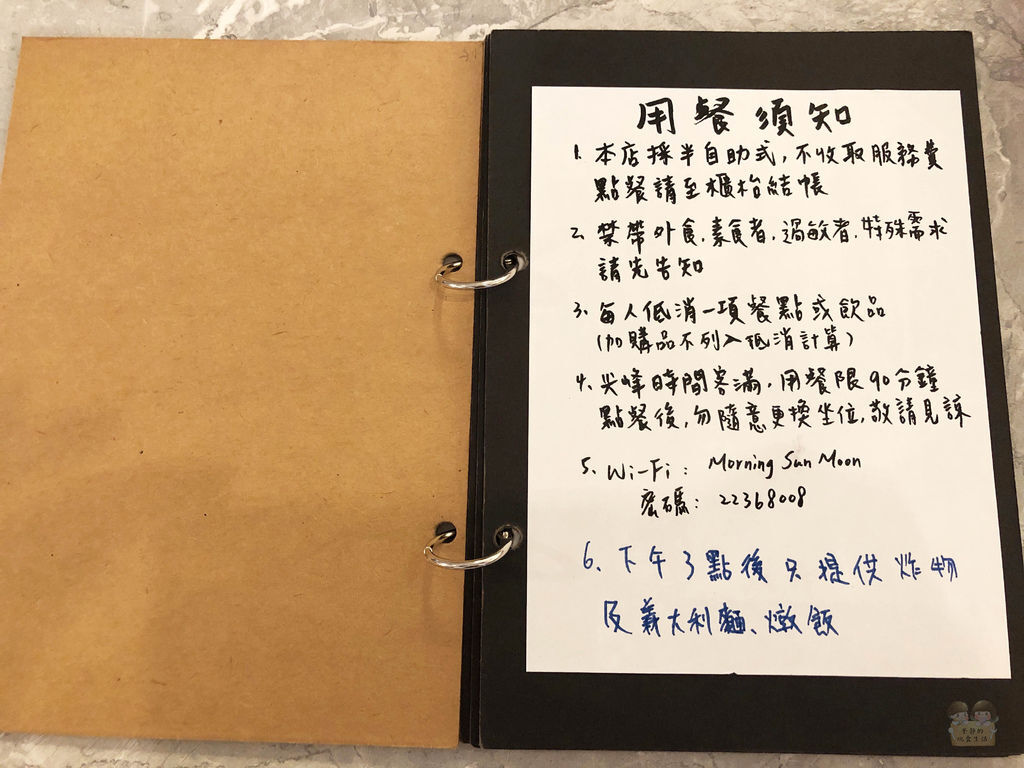 用餐須知
1. 本店採半自助式,不收取服務費
點餐請至櫃枱結帳
2. 禁帶外食.素食者.過敏者.特殊需求
請先告知
3. 每人低消一項餐點或飲品
(加購品不列入低消計算)
4. 尖峰時間客滿,用餐限90分鐘
點餐後,勿隨意更換坐位,敬請見諒
5. Wi-Fi: Morning Sun Moon
密碼: 22368008
6. 下午3點後只提供炸物
及義大利麵、燉飯